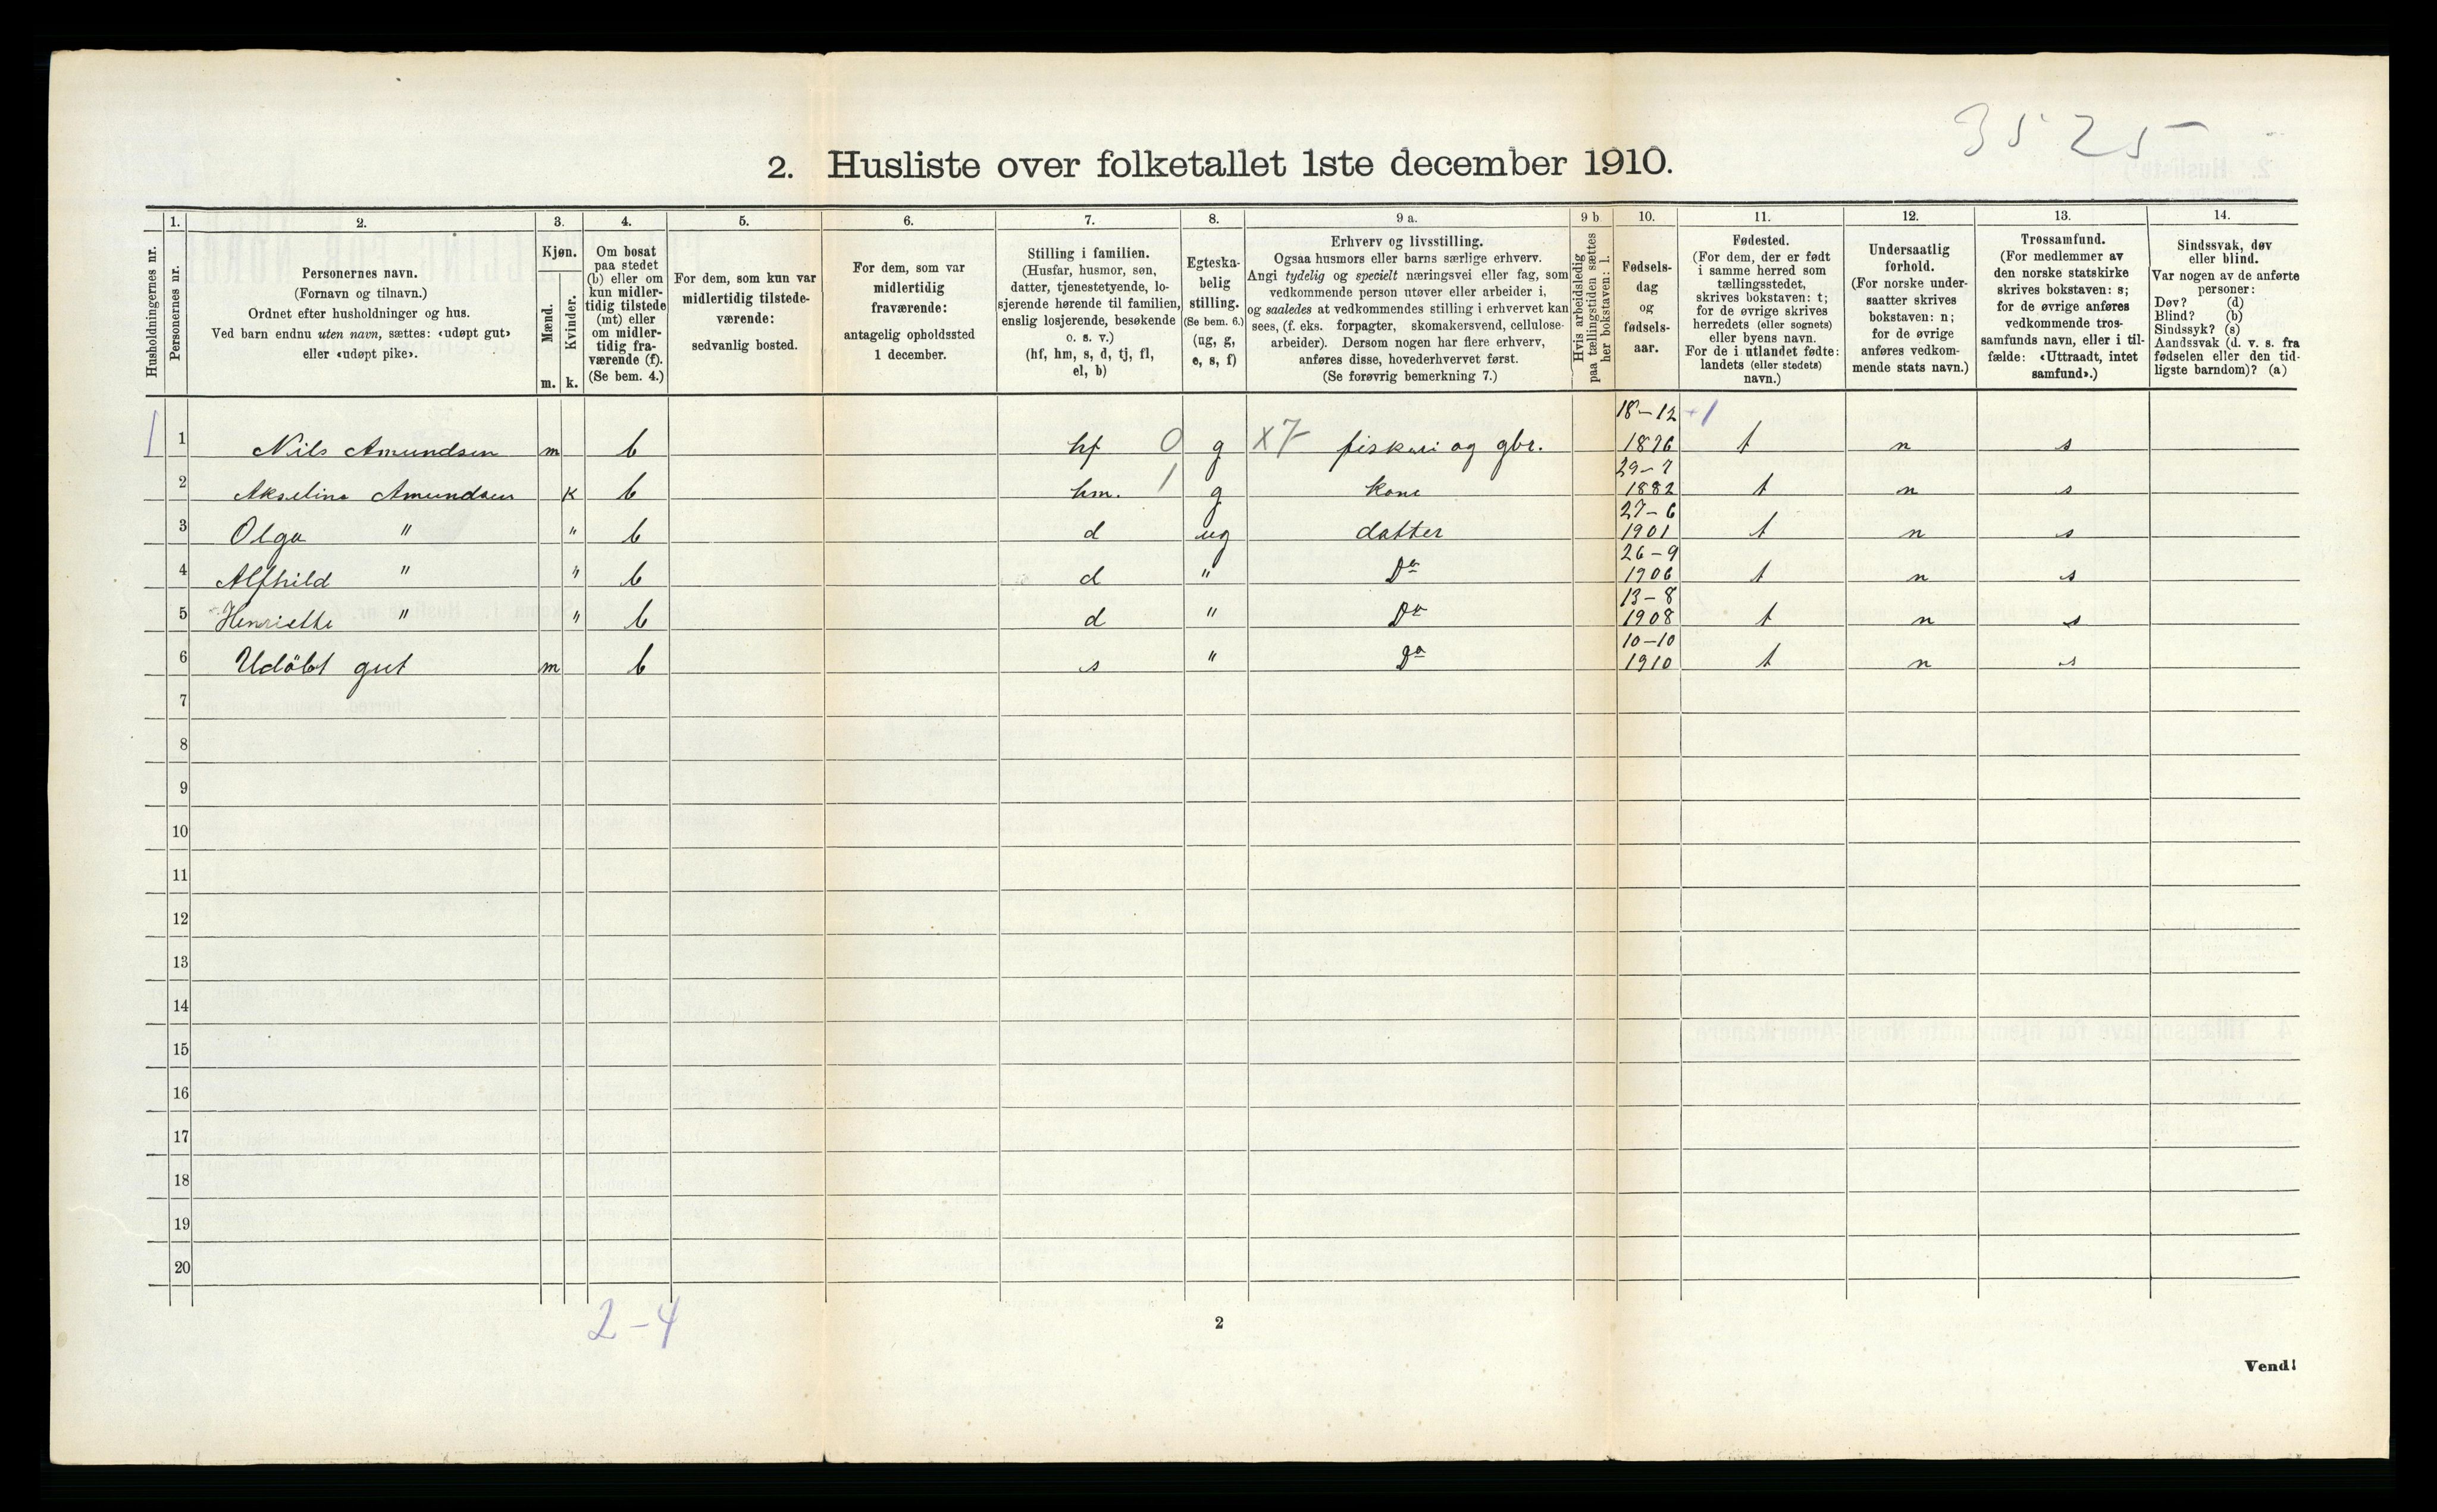 3525
2. Husliste over folketallet 1ste december 1910.
Husholdningernes nr.
1.
Personernes nr.
2.
Personernes navn.
(Fornavn og tilnavn.)
Ordnet efter husholdninger og hus.
Ved barn endnu uten navn, sættes: «udøpt gut»
eller «udøpt pike».
3.
Kjøn.
Mænd.
Kvinder.
m. k.
4.
Om bosat
paa stedet
(b) eller om
kun midler-
tidig tilstede
(mt) eller
om midler-
tidig fra-
værende (f).
(Se bem. 4.)
5.
For dem, som kun var
midlertidig tilstede-
værende:
sedvanlig bosted.
6.
For dem, som var
midlertidig
fraværende:
antagelig opholdssted
1 december.
7.
Stilling i familien.
(Husfar, husmor, søn,
datter, tjenestetyende, lo-
sjerende hørende til familien,
enslig losjerende, besøkende
o. s. v.)
(hf, hm, s, d, tj, fl,
el, b)
8.
Egteska-
belig
stilling.
(Se bem. 6.)
(ug, g,
e, s, f)
9 a.
Erhverv og livsstilling.
Ogsaa husmors eller barns særlige erhverv.
Angi tydelig og specielt næringsvei eller fag, som
vedkommende person utøver eller arbeider i,
og saaledes at vedkommendes stilling i erhvervet kan
sees, (f. eks. forpagter, skomakersvend, cellulose-
arbeider). Dersom nogen har flere erhverv,
anføres disse, hovederhvervet først.
(Se forøvrig bemerkning 7.)
9 b
Hvis arbeidsledig
paa tællingstiden sættes
her bokstaven: l.
10.
Fødsels-
dag
og
fødsels-
aar.
11.
Fødested.
(For dem, der er født
i samme herred som
tællingsstedet,
skrives bokstaven: t;
for de øvrige skrives
herredets (eller sognets)
eller byens navn.
For de i utlandet fødte:
landets (eller stedets)
navn.)
12.
Undersaatlig
forhold.
(For norske under-
saatter skrives
bokstaven: n;
for de øvrige
anføres vedkom-
mende stats navn.)
13.
Trossamfund.
(For medlemmer av
den norske statskirke
skrives bokstaven: s;
for de øvrige anføres
vedkommende tros-
samfunds navn, eller i til-
fælde: «Uttraadt, intet
samfund».)
14.
Sindssvak, døv
eller blind.
Var nogen av de anførte
personer:
Døv? (d)
Blind? (b)
Sindssyk? (s)
Aandssvak (d. v. s. fra
fødselen eller den tid-
ligste barndom)? (a)
18-12 +1
1 1 Nils Amundsen m b hf 0 g x7 fiskeri og gbr. 1876 t n s
29-7
2 Akseline Amundsen k b hm. 1 g kone 1882 t n s
27-6
3 Olga " " b d ug datter 1901 t n s
26-9
4 Alfhild " " b d " Do 1906 t n s
13-8
5 Henriette " " b d " Do 1908 t n s
10-10
6 Udöbt gut m b s " Do 1910 t n s
7
8
9
10
11
12
13
14
15
16
17
18
19
20
2-4
2
Vend!